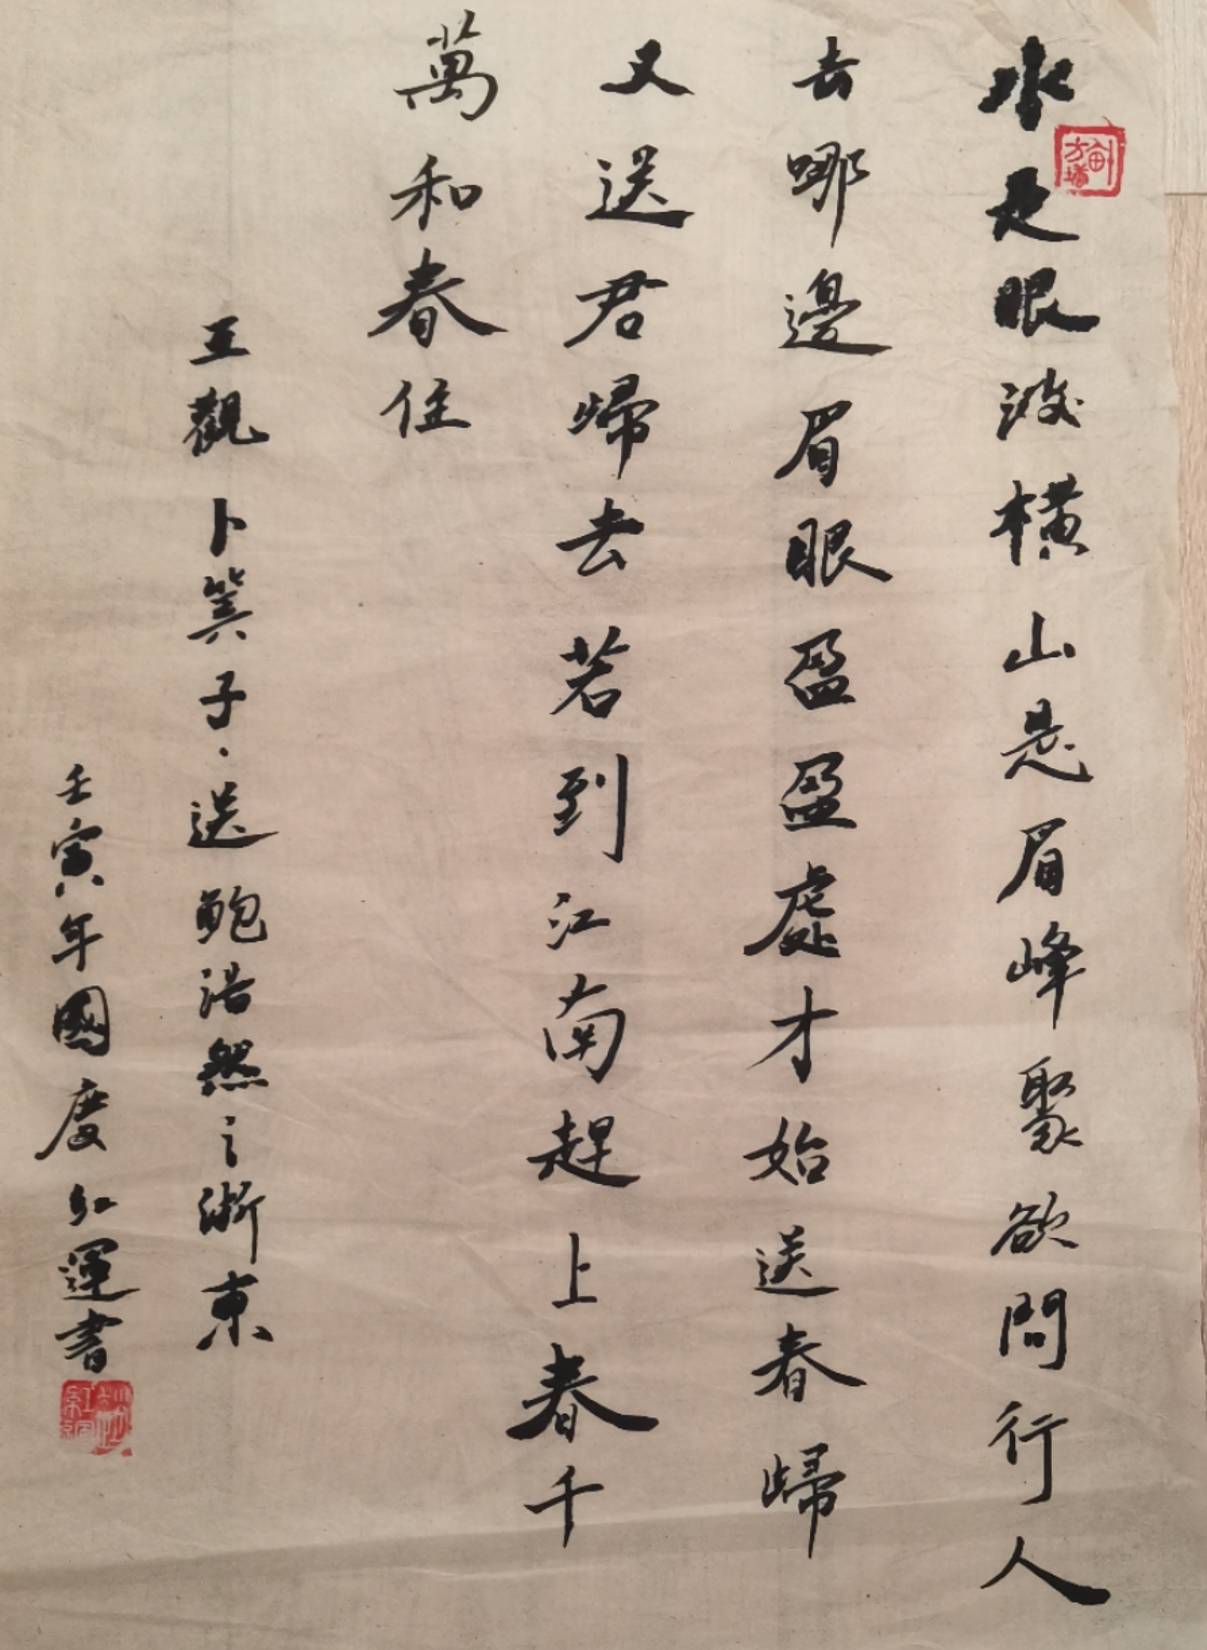 水是眼波橫山是眉峰聚欲問行人
去哪邊眉眼盈盈處才始送春歸
又送君歸去若到江南趕上春千
萬和春住
王觀卜算子·送鮑浩然之浙東
壬寅年國慶紅運書